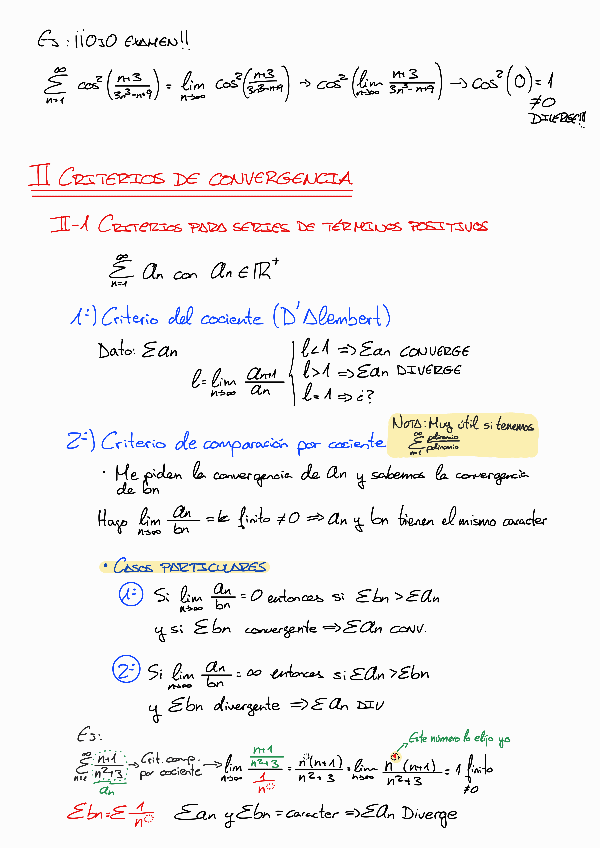 Ej: ¡¡OJO EXAMEN!!
∞ Σ n=1 cos²(n+3 / 3n³-n+9) = lim n→∞ cos²(n+3 / 3n³-n+9) → cos²(lim n→∞ n+3 / 3n³-n+9) → cos²(0) = 1
≠0
DIVERGE!!!
II CRITERIOS DE CONVERGENCIA
II-1 CRITERIOS PARA SERIES DE TÉRMINOS POSITIVOS
∞ Σ n=1 an con an ∈ ℝ⁺
1º) Criterio del cociente (D'Alembert)
Dato: Σan
l = lim n→∞ an+1 / an
l<1 ⇒ Σan CONVERGE
l>1 ⇒ Σan DIVERGE
l=1 ⇒ ¿?
2º) Criterio de comparación por cociente
NOTA: Muy útil si tenemos
∞ Σ n=1 polinomio / polinomio
· Me piden la convergencia de an y sabemos la convergencia
de bn
Hago lim n→∞ an / bn = k finito ≠0 ⇒ an y bn tienen el mismo caracter
• CASOS PARTICULARES
1º Si lim n→∞ an / bn = 0 entonces si Σbn > Σan
y si Σbn convergente ⇒ Σan CONV.
2º Si lim n→∞ an / bn = ∞ entonces si Σan > Σbn
y Σbn divergente ⇒ Σan DIV
Ej:
Este número lo elijo yo
∞ Σ n=1 n+1 / n²+3 → Crit. comp. por cociente → lim n→∞ (n+1 / n²+3) / (1 / n¹) = n¹(n+1) / n²+3 = lim n→∞ n¹(n+1) / n²+3 = 1 finito
≠0
an
Σbn = Σ 1 / n¹ Σan y Σbn = caracter ⇒ Σan Diverge